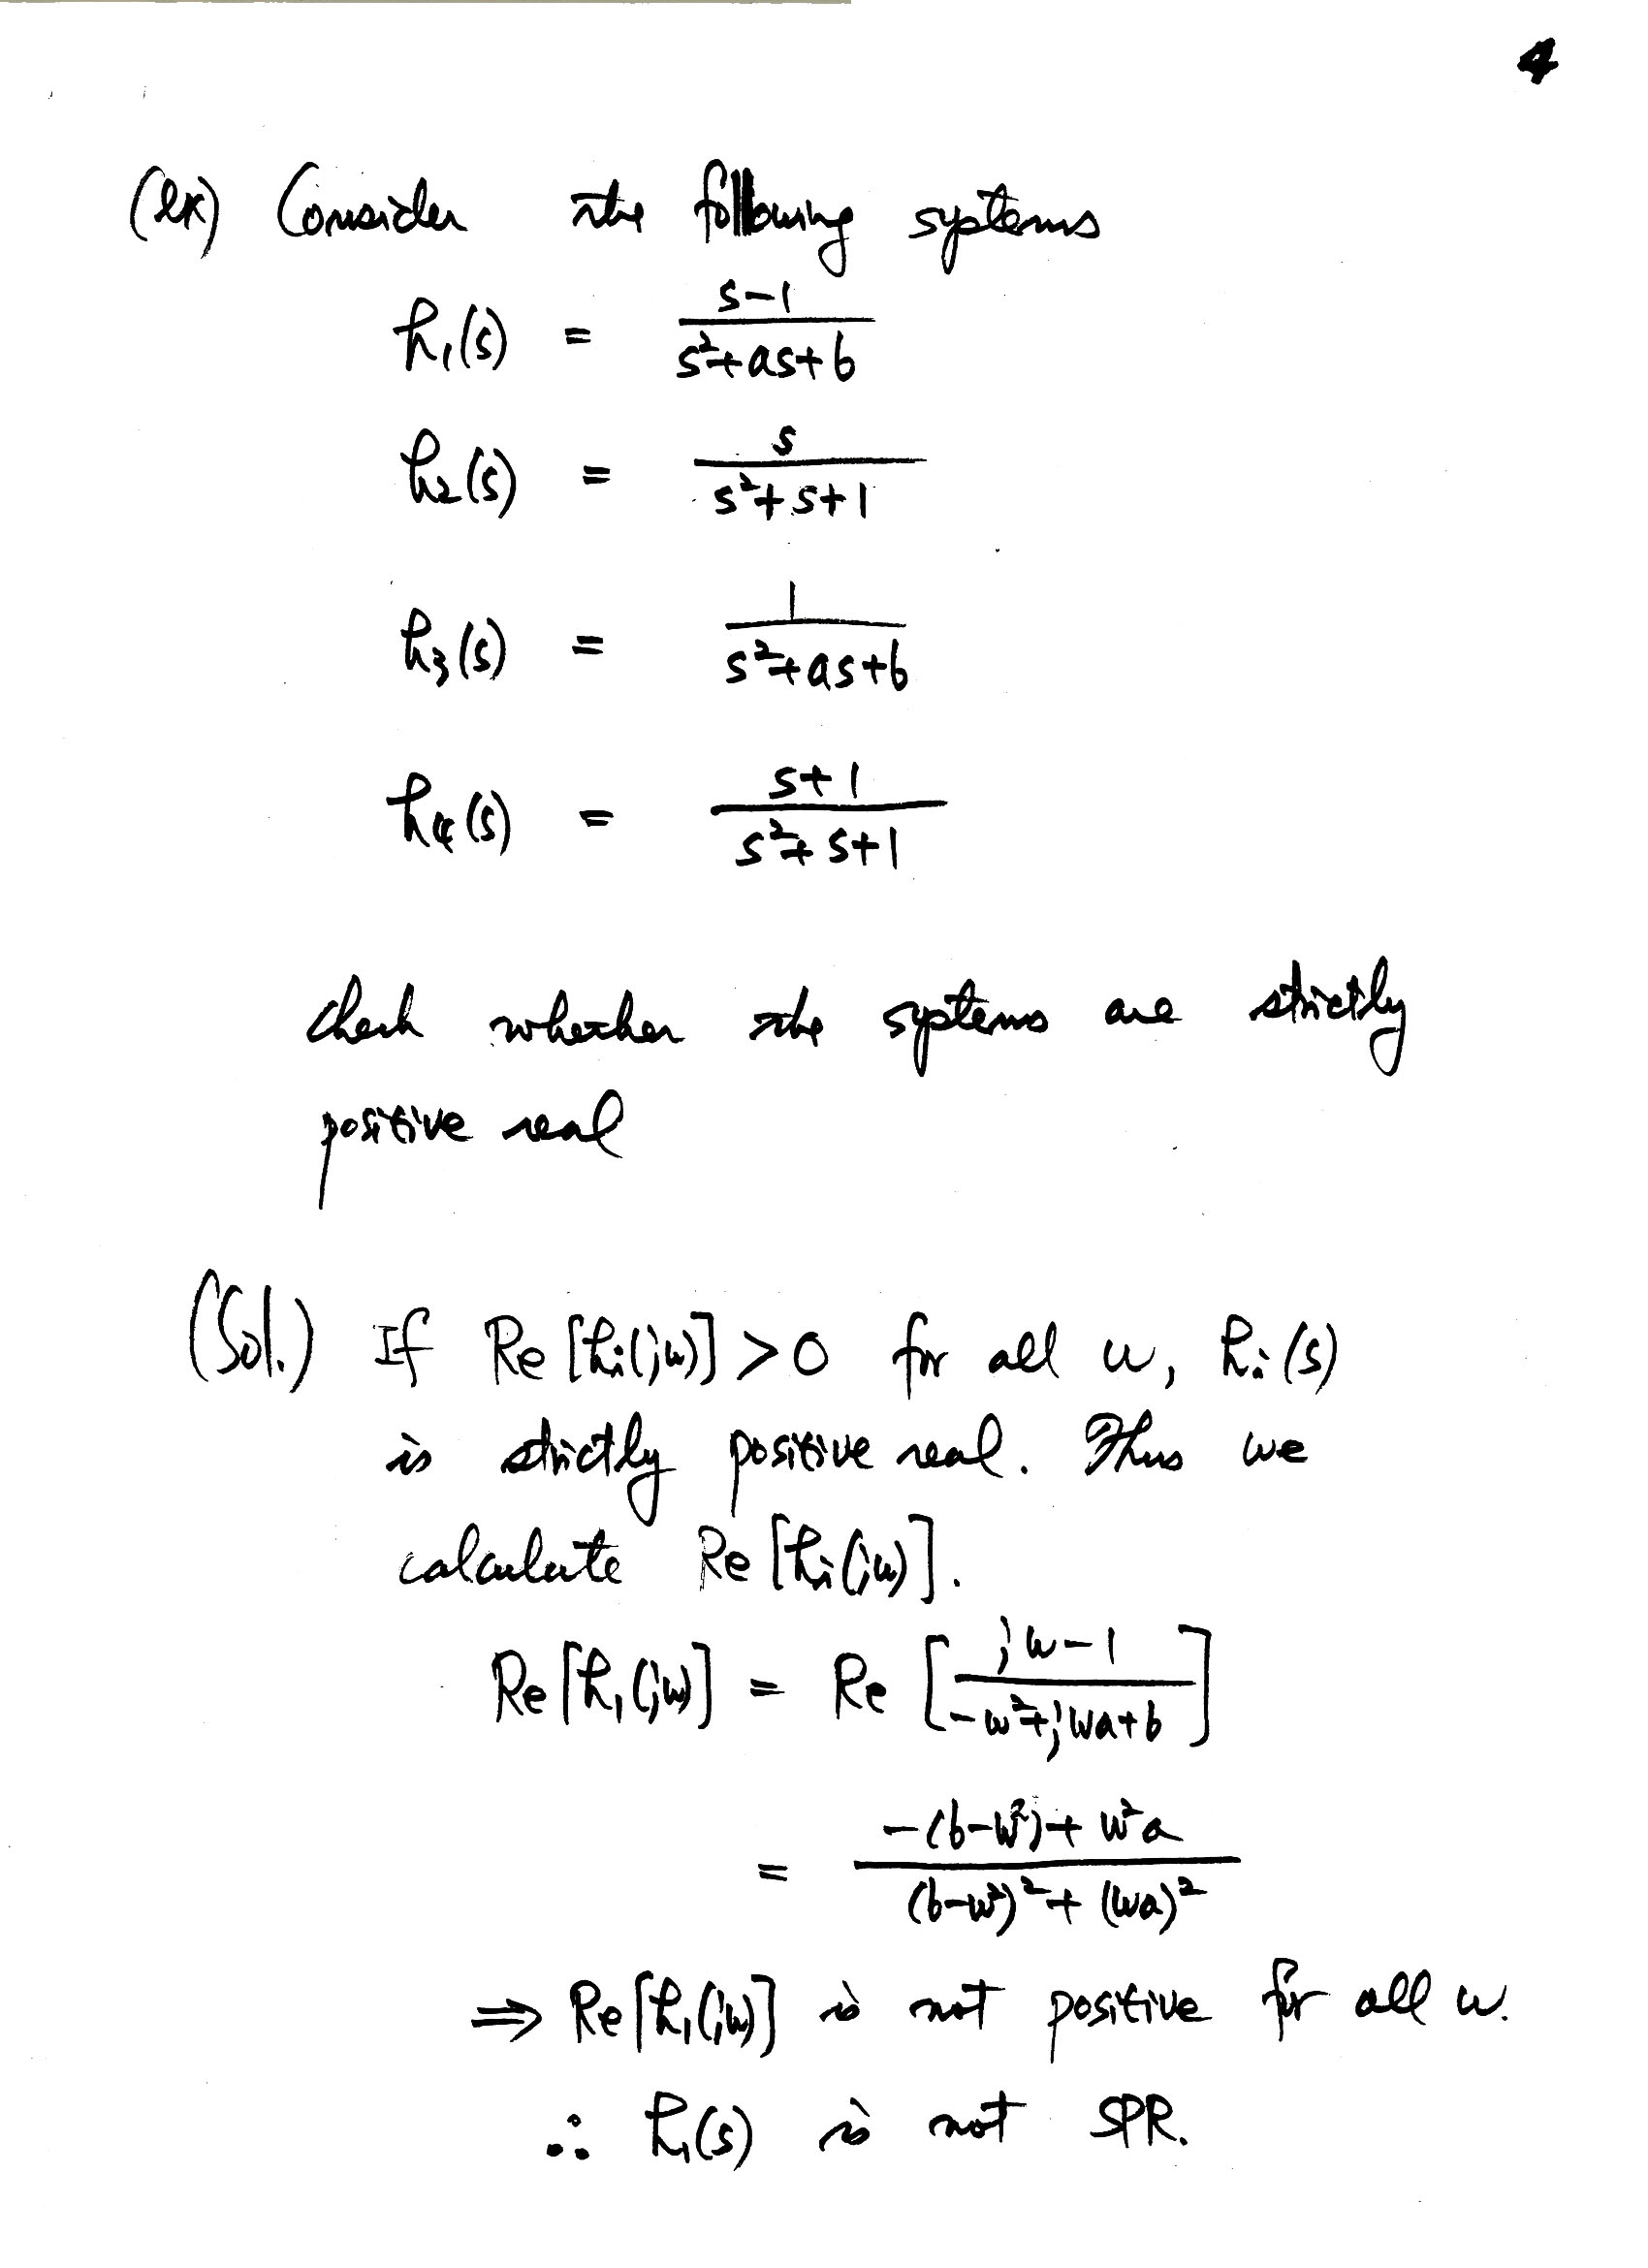 4
(ex) Consider the following systems
h₁(s) = (s-1)/(s²+as+b)
h₂(s) = s/(s²+s+1)
h₃(s) = 1/(s²+as+b)
h₄(s) = (s+1)/(s²+s+1)
check whether the systems are strictly
positive real
(Sol.) If Re[hᵢ(jw)] > 0 for all w, hᵢ(s)
is strictly positive real. Thus we
calculate Re[hᵢ(jw)].
Re[h₁(jw)] = Re[(jw-1)/(-w²+jwa+b)]
= (-(b-w²)+w²a)/((b-w²)²+(wa)²)
⇒ Re[h₁(jw)] is not positive for all w.
∴ h₁(s) is not SPR.